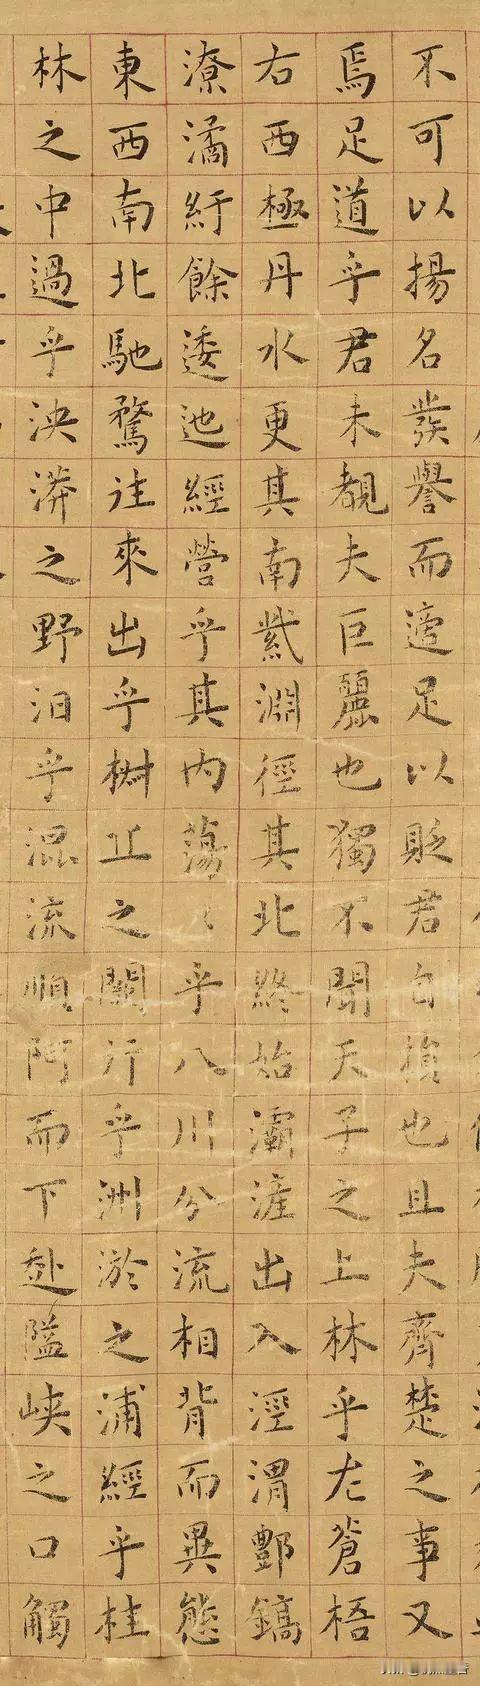 不可以揚名發譽而適足以貶君自損也且夫齊楚之事又
焉足道乎君未覩夫巨麗也獨不聞天子之上林乎左蒼梧
右西極丹水更其南紫淵徑其北終始灞滻出入涇渭酆鎬
潦潏紆餘逶迤經營乎其內蕩〻乎八川分流相背而異態
東西南北馳騖往來出乎椒丘之闕行乎洲淤之浦經乎桂
林之中過乎泱漭之野汩乎混流順阿而下赴隘峽之口觸